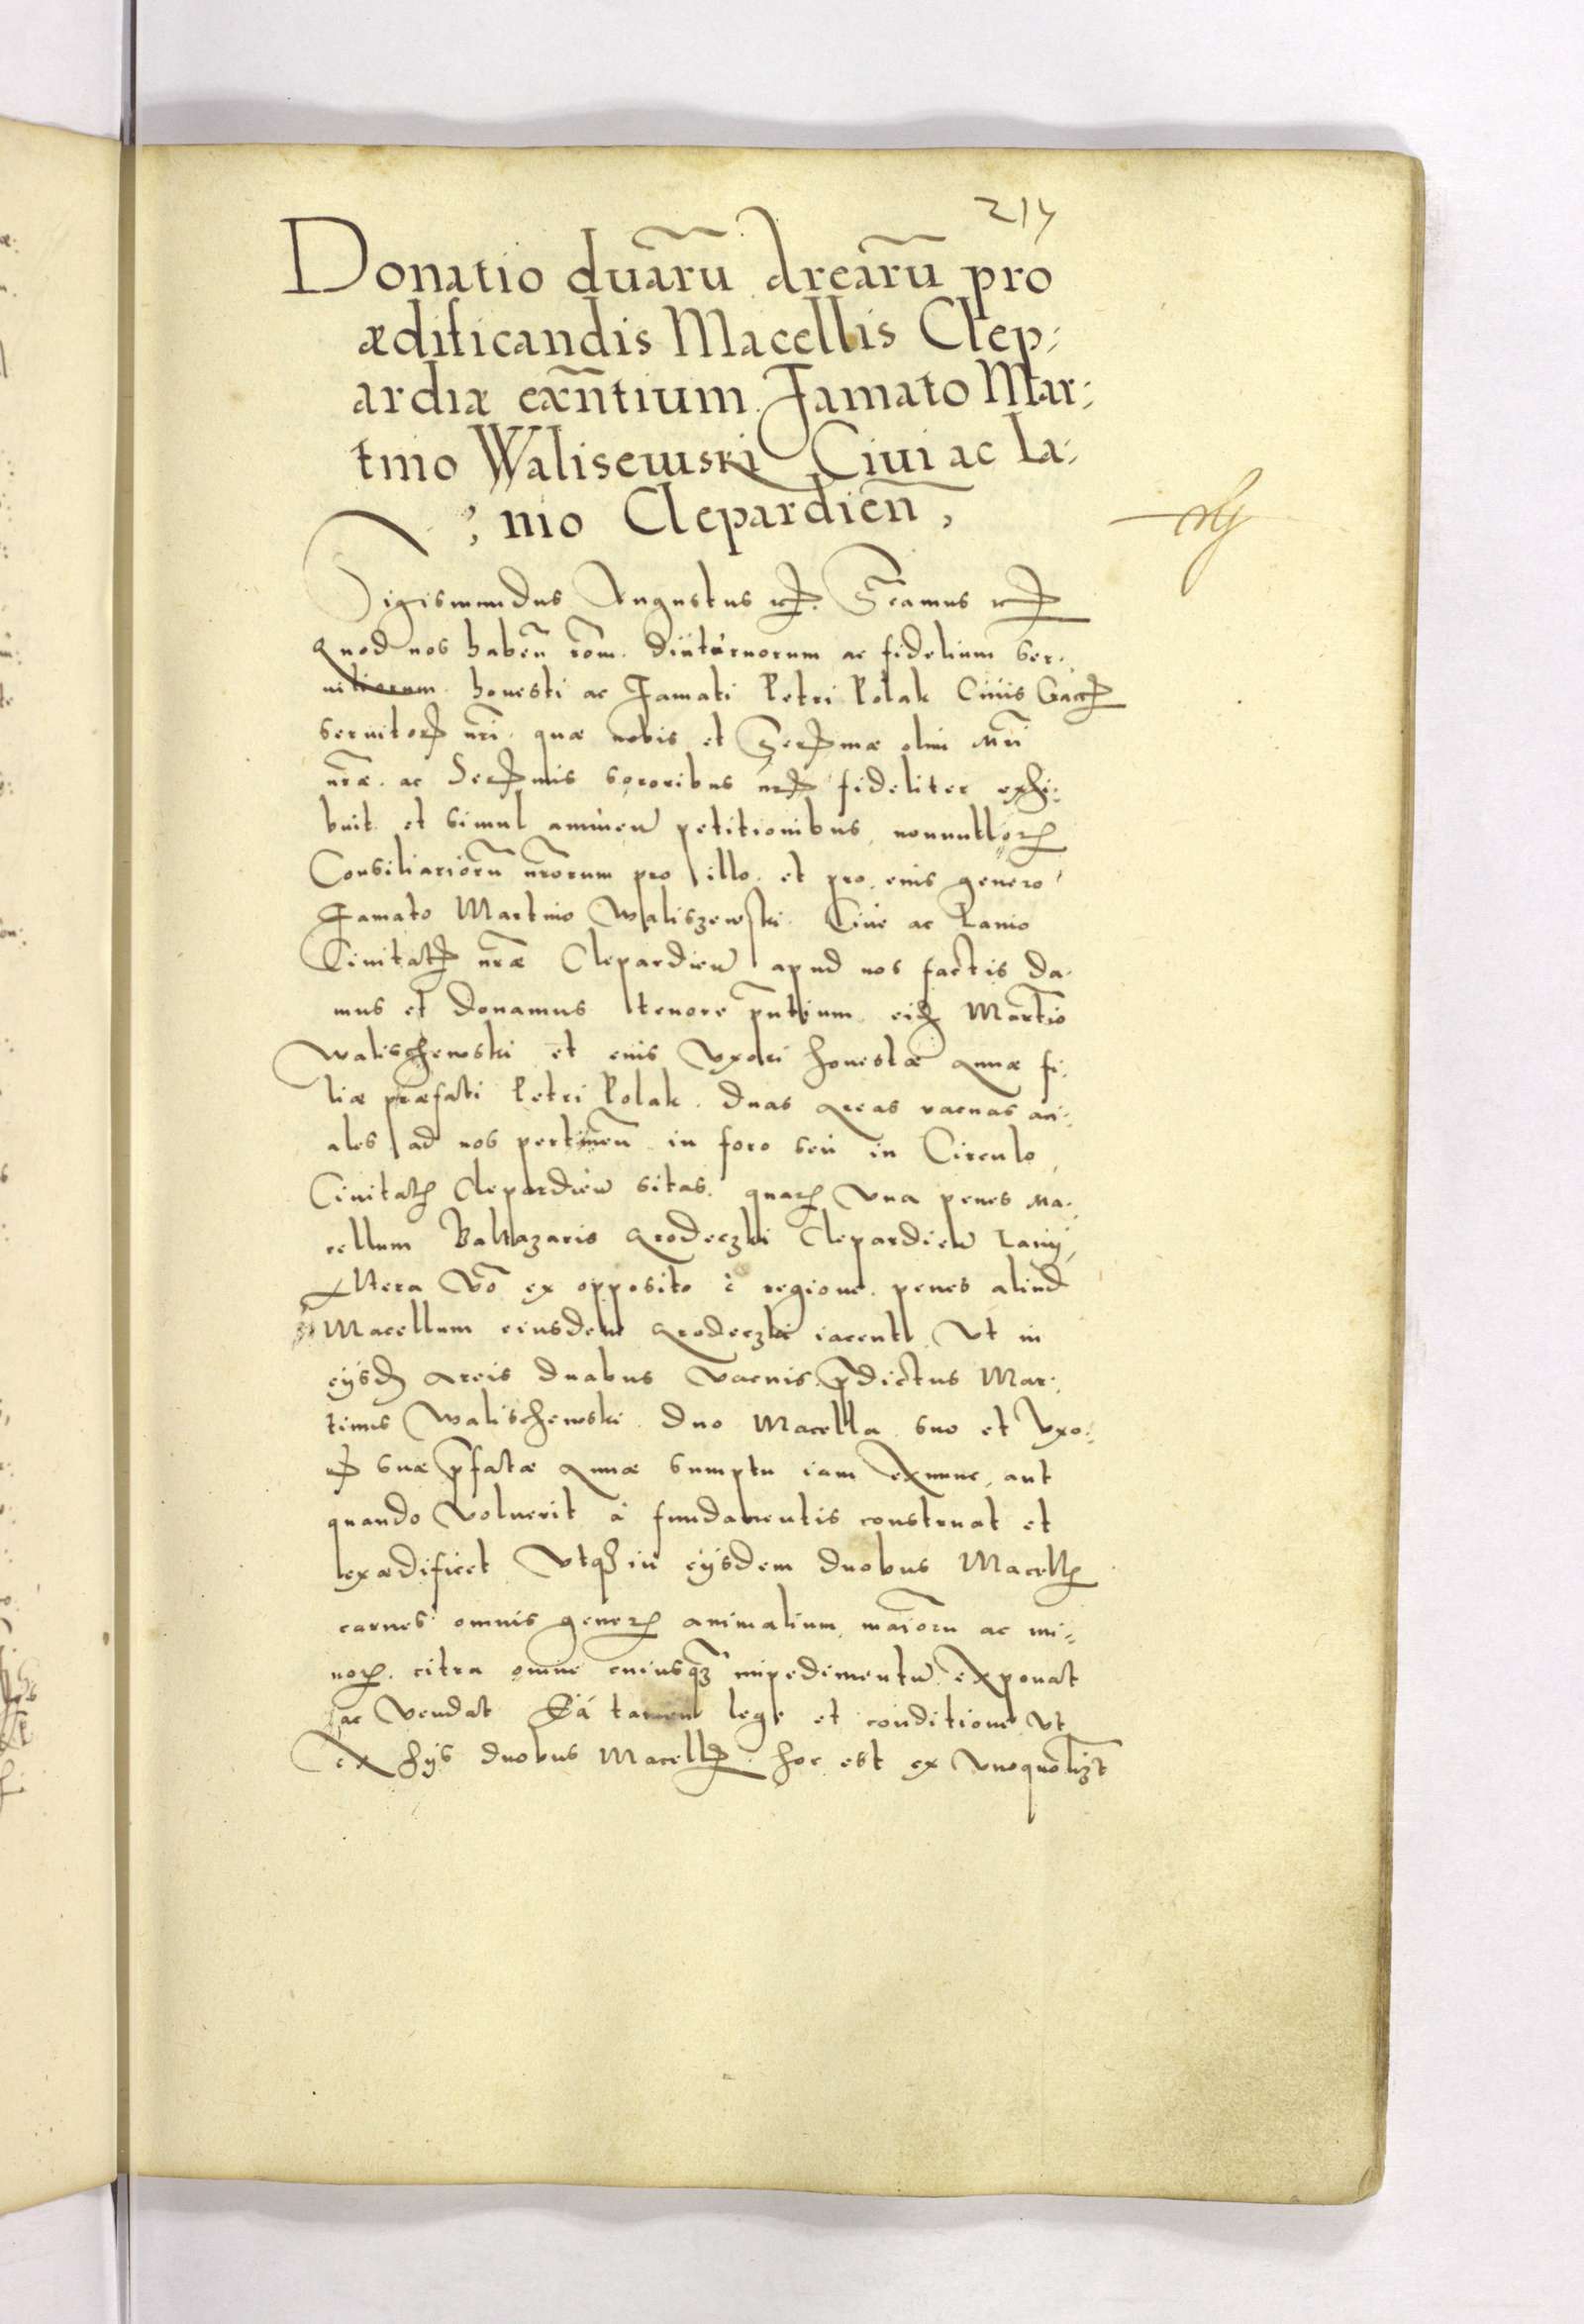 214
Donatio duarū Arearū pro
ædificandis Macellis Clep⸗
ardiæ exñtium Famato Mar⸗
tino Walisewski Ciui ac La⸗
nio Clepardien̄,
Sigismundus Augustus rc. Sigcamus rc
Quod nos haben̄ rōm diuturnorum ac fidelium ser⸗
uitiorum honesti ac Famati Petri Polak Ciuis Cracc
seruitor nr̄i quæ nobis et Sermæ olim Mr̄i
nr̄æ ac Sermis sororibus nr̄is fideliter exhi⸗
buit et simul annuen̄ petitionibus nonnullor
Consiliariorū nr̄orum pro illo et pro eius genero
Famato Martino Waliszewski Ciue ac Lanio
Ciuitatis nr̄æ Clepardien̄ apud nos factis da⸗
mus et donamus tenore pn̄tium eid Martīo
Walischewski et eius Vxori honestæ Annæ fi⸗
liæ præfati Petri Polak duas Areas vacuas
ales ad nos pertinen̄ in foro seu in Circulo
Ciuitatis Clepardien̄ sitas quar Vna penes Ma⸗
cellum Baltazaris Grodeczki Clepardien̄ Lanij
Altera Vō ex opposito è regione penes aliud
Macellum eiusdem Grodeczki iacentē Vt in
eijsd Areis duabus Vacuis p̄dictus Mar⸗
tinus Walischewski duo Macella suo et Vxo⸗
ris suæ p̄fatæ Annæ sumptu iam exnunc aut
quando Voluerit à fundamentis construat et
exædificet Vtq in eijsdem duobus Macellis
carnes omnis generis animalium maiorū ac mi⸗
nor citra omne cuiusq impedimentū exponat
ac Vendat Ea tamen lege et conditione Vt
ex hijs duobus Macellis hoc est ex Vnoquolizt